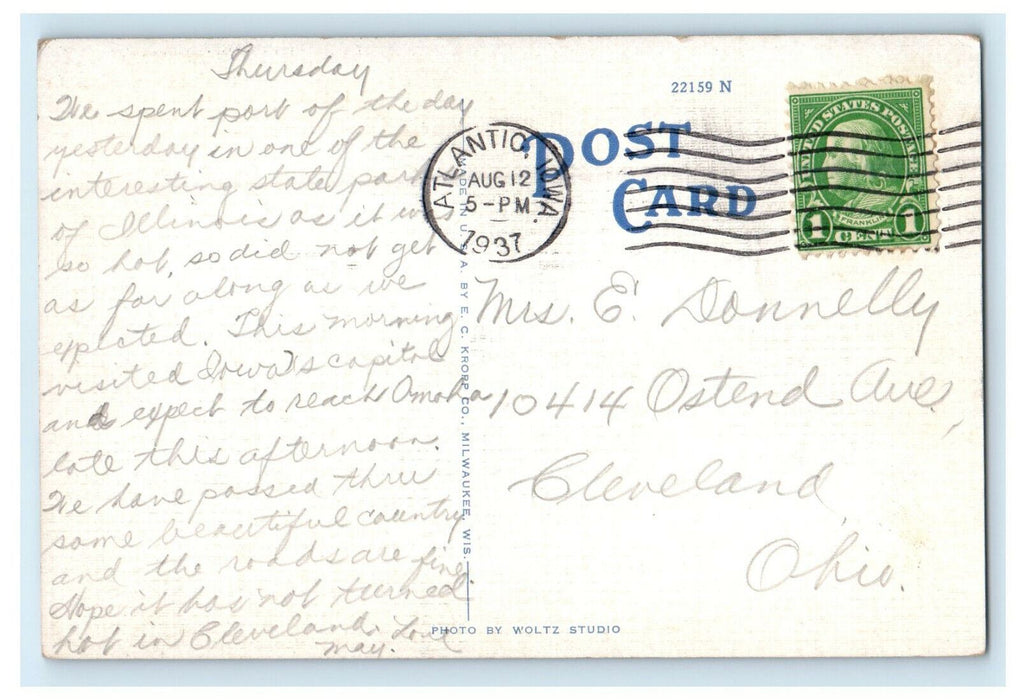 Thursday
We spent part of the day
yesterday in one of the
interesting state parks
of Illinois as it was
so hot, so did not get
as far along as we
expected. This morning
visited Iowa's capitol
and expect to reach Omaha
late this afternoon.
We have passed thru
some beautiful country
and the roads are fine.
Hope it has not turned
hot in Cleveland. Love
May.
22159 N
POST
CARD
ATLANTIC, IOWA.
AUG 12
5-PM
1937
UNITED STATES POSTAGE
FRANKLIN
1 CENT 1
MADE IN U.S.A. BY E. C. KROPP CO., MILWAUKEE, WIS.
Mrs. E. Donnelly
10414 Ostend Ave.,
Cleveland
Ohio.
PHOTO BY WOLTZ STUDIO